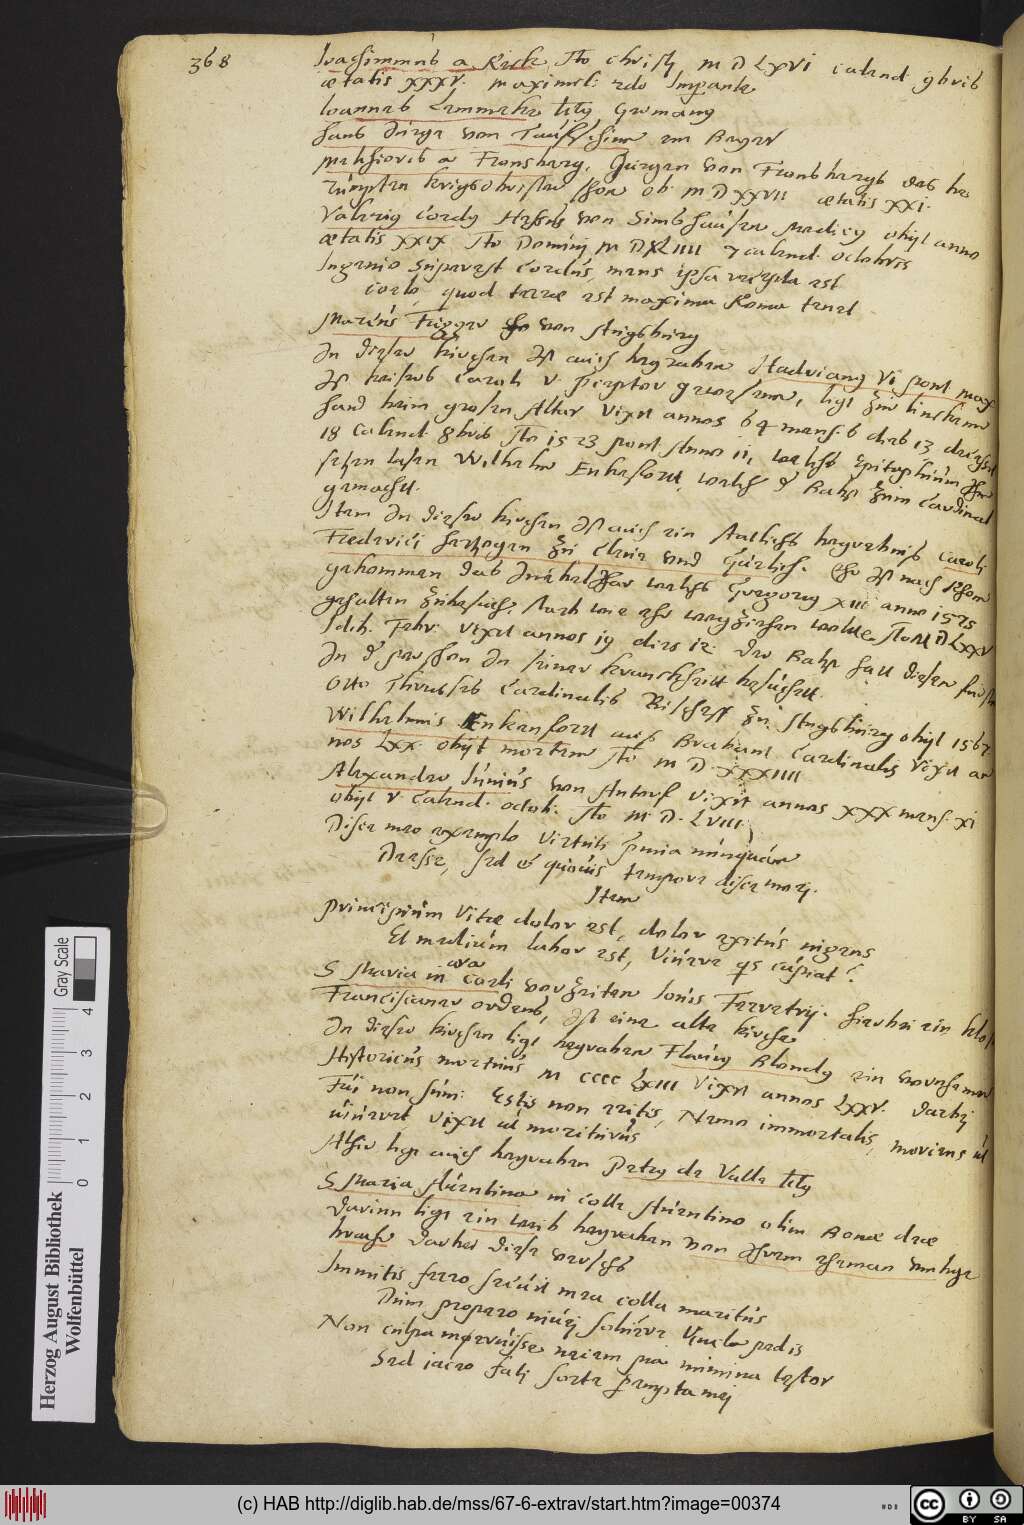 368
Joachimmus a Rick Ao christi M D LXVI calend 9bris
ætatis XXXV. maximil: 2do Imperante
Joannes Lemmeke tit9 Germang
Hans Jürge von
Melchioris a Fronsberg, Jürgen von Fronsbergs des be
rümpten krigsobristen Shon ob: M D XXVII ætatis XXI.
Valerig Cordg Hessus von Simshausen medicg obijt anno
ætatis XXIX Ao Dominj M D XLIIII 7 calend octobris
Ingenio superest Cordus, mens ipsa recepta est
Coelo, quod terræ est maxima Roma tenet
Marcus Fugger von Augsburg
In dieser kirchen ist auch begraben Hadriang VI pont max
ist keisers Caroli V. preceptor gewesenn, ligt zur lincken
hand beim grosen Altar vixit annos 64 mens. 6 dies 13
18 calend 8bris Ao 1523 pont Anno ii, welchs Epitaphium ihm
setzen lasen Wilhelm Enkefortt, welch d Babst zum Cardinal
gemacht.
Item In dieser kirchen ist auch ein statlichs begrebnis Caroli
Frederici hertzogen zu Cleve und Gürlich. Ehr ist nach Rhom
gekommen das Jubel Jhar welchs Gregorg XIII anno 1575
gehalten zubesuch: starb wie ehr wegziehen wolte Ao M D LXXV
Idib. Febr: vixit annos 19 dies 12: der Babst hatt diesen
In d person In seiner kranckheitt besuchett
Otto Thruckses Cardinalis Bischoff zu Augsburg obijt 1567
Wilhelmus Enkenfortt aus Brabant Cardinalis vixit an
nos LXX. obijt mortem Ao M D XXXIIII
Alexander Junius von Antorf vixit annos XXX mens. XI
obijt V. Calend. octob. Ao M. D. LVIII
Disce meo exemplo virtuti premia nunquam
Deesse, sed et quovis tempore disce mori.
Item
Principium vitæ dolor est, dolor exitus ingens
Et medium labor est, vivere quis cupiat?
S Maria in ara Coeli vorzeiten Jovis Feretrij. hierbei ein klos
Franciscaner ordens, ist eine alte kirche
In dieser kirchen ligt begraben Flaving Blondg ein vornemer
Historicus mortuus M CCCC LXIII vixit annos LXXV. darbej
Fui non sum: Estis non eritis, Nemo immortalis, moriens ut
viveret vixit ut moriturus
Alhir ligt auch begraben Petrg de Valle tit9
S Maria Auentina in colle Auentino olim Bonæ deæ
darinn ligt ein weib begraben von ihrem eheman umbge
bracht darbei diese versch
Immitis ferro secuit mea colla maritus
Dum propero niuej soluere vincla pedis
Non culpa meruisse necem per numina testor
Sed iaceo fati sorte perempta mej
Herzog August Bibliothek
Wolfenbüttel
0 1 2 3 4
Gray Scale
(c) HAB http://diglib.hab.de/mss/67-6-extrav/start.htm?image=00374
cc BY SA